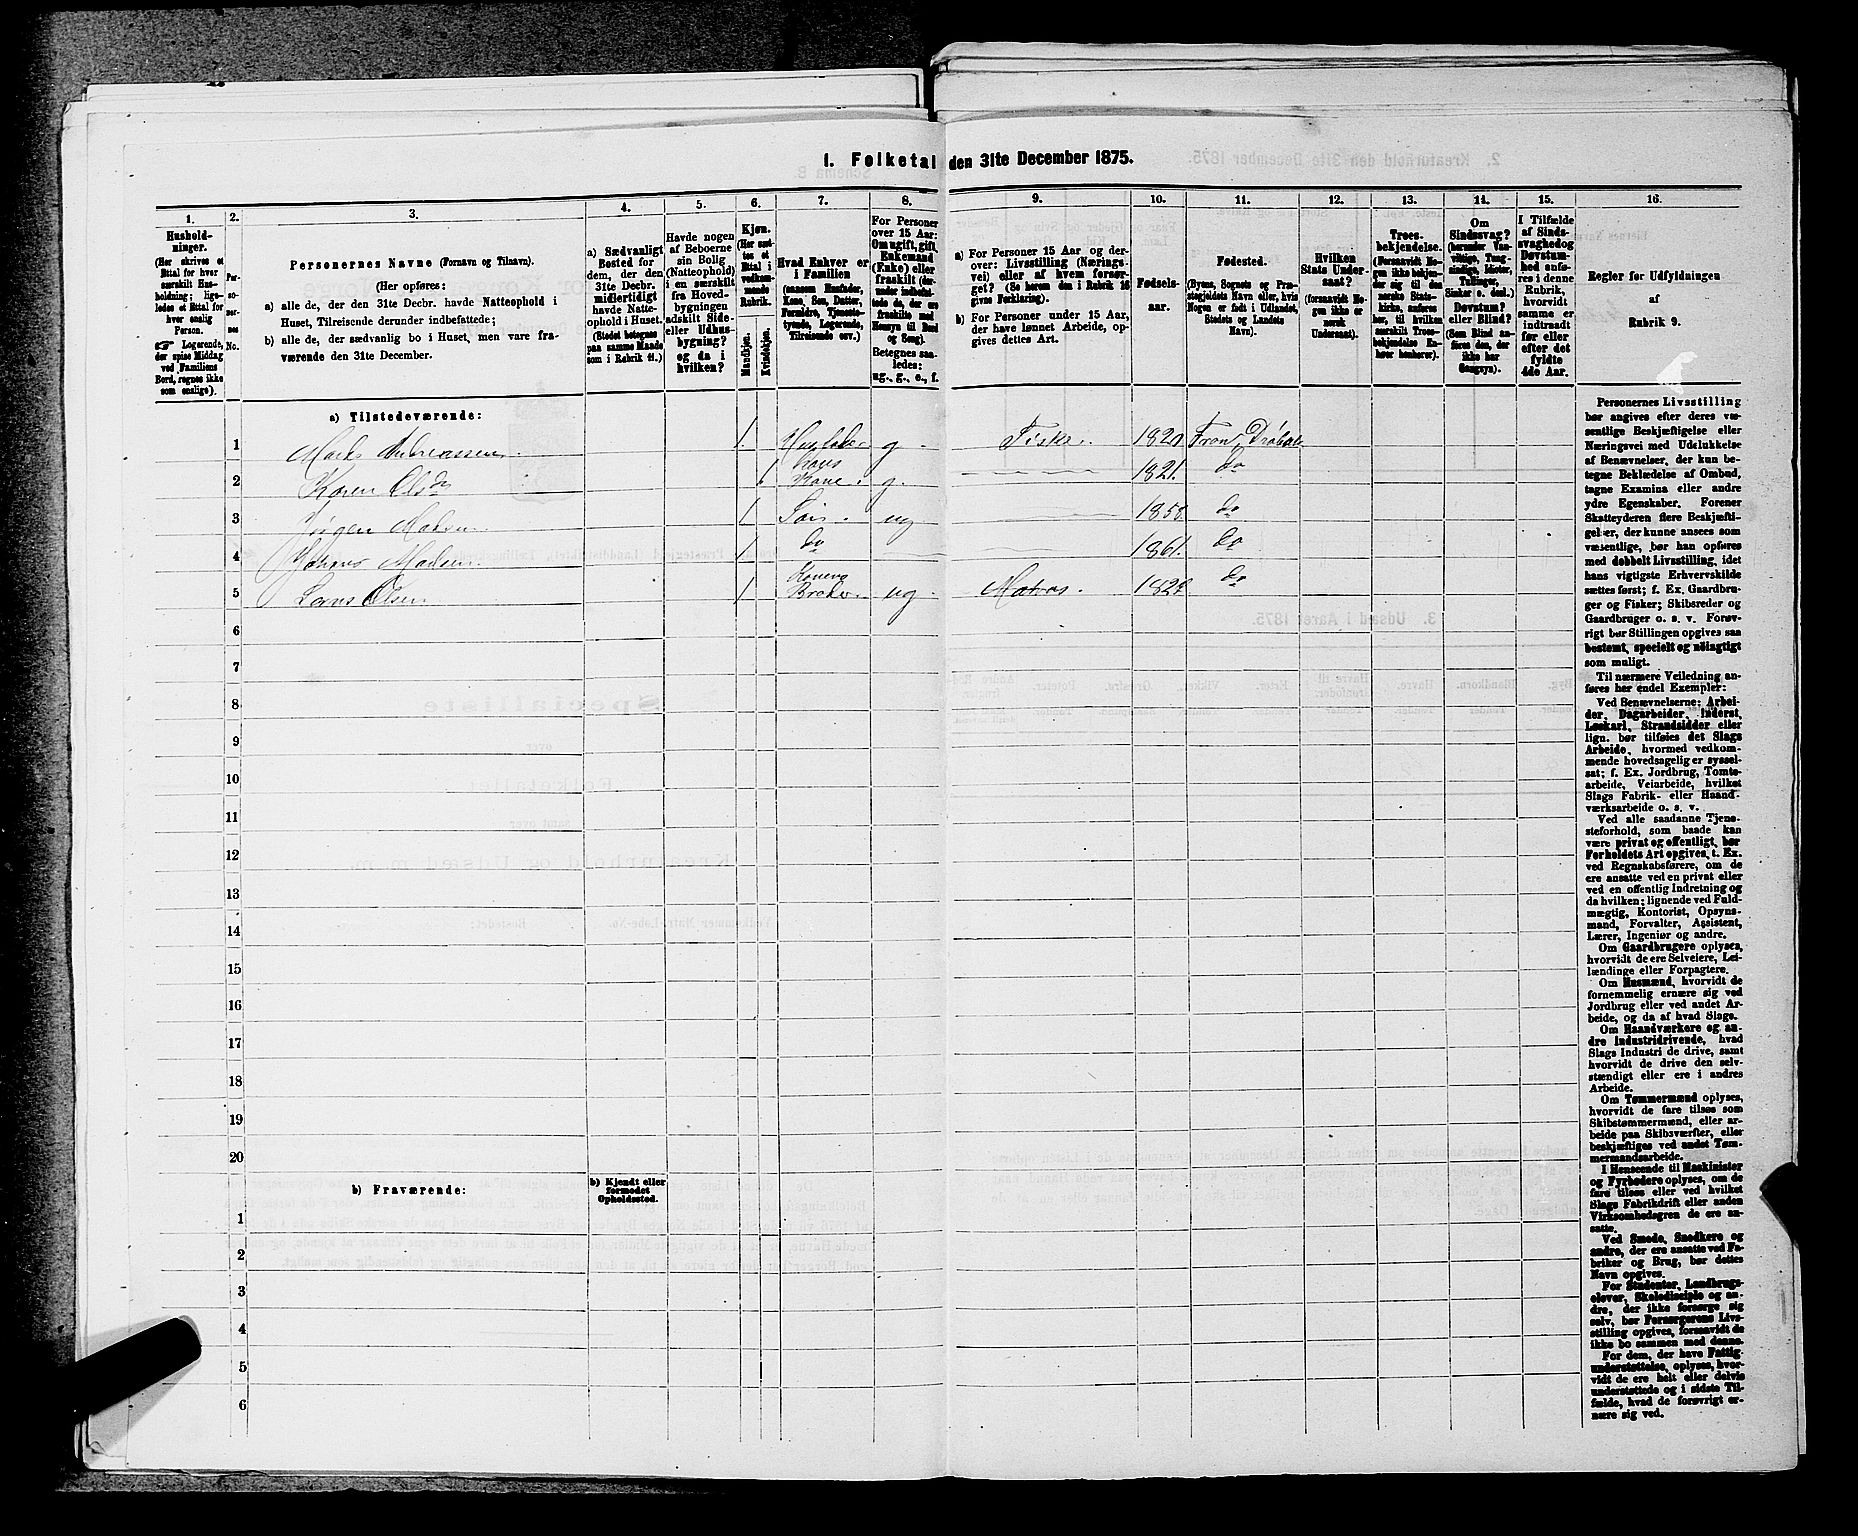 1. Folketal den 31te December 1875.
1. 2. 3. 4. 5. 6. 7. 8. 9. 10. 11. 12. 13. 14. 15. 16.
Hushold-
ninger.
(Her skrives et
Ettal for hver
særskilt Hus-
holdning; lige-
ledes et Ettal for
hver enslig
Person.
☞ Logerende,
der spise Middag
ved Familiens
Bord, regnes ikke
som enslige).
Per-
so-
ner-
nes
No.
Personernes Navne (Fornavn og Tilnavn).
(Her opføres:
a) alle de, der den 31te Decbr. havde Natteophold i
Huset, Tilreisende derunder indbefattede;
b) alle de, der sædvanlig bo i Huset, men vare fra-
værende den 31te December.
a) Sædvanligt
Bosted for
dem, der den
31te Decbr.
midlertidigt
havde Natte-
ophold i Huset.
(Stedet betegnes
paa samme Maade
som i Rubrik 11.)
Havde nogen
af Beboerne
sin Bolig
(Natteophold)
i en særskilt
fra Hoved-
bygningen
adskilt Side-
eller Udhus-
bygning?
og da i
hvilken?
Kjøn.
(Her sæt-
tes et
Ettal i
vedkom-
mende
Rubrik.
Mandkjøn.
Kvindekjøn.
Hvad Enhver er
i Familien
(saasom Husfader,
Kone, Søn, Datter,
Forældre, Tjeneste-
tyende, Logerende,
Tilreisende osv.)
For Personer
over 15 Aar:
Om ugift, gift,
Enkemand
(Enke) eller
fraskilt (der-
under indbefat-
tede de, der ere
fraskilte med
Hensyn til Bord
og Seng).
Betegnes saa-
ledes:
ug., g., e., f.
a) For Personer 15 Aar og der-
over: Livsstilling (Nærings-
vei) eller af hvem forsør-
get? (Se herom den i Rubrik 16
givne Forklaring).
b) For Personer under 15 Aar,
der have lønnet Arbeide, op-
gives dettes Art.
Fødsels-
aar.
Fødested.
(Byens, Sognets og Præ-
stegjeldets Navn eller, hvis
Nogen er født i Udlandet,
Stedets og Landets
Navn).
Hvilken
Stats Under-
saat?
(forsaavidt No-
gen ikke er
norsk
Undersaat).
Troes-
bekjendelse.
(Forsaavidt No-
gen ikke bekjen-
der sig til den
norske Stats-
kirke, anføres
her, til hvilken
særskilt Troes-
bekjendelse En-
hver henhører).
Om
Sindssvag?
(herunder Van-
vittige, Tung-
sindige, Idioter,
Tullinger,
Sinker o. desl.)
Døvstum?
eller Blind?
(Som Blind an-
føres den, der
ikke har
Gangsyn).
I Tilfælde
af Sinds-
svaghed og
Døvstum-
hed anfø-
res i denne
Rubrik,
hvorvidt
samme er
indtraadt
før eller
efter det
fyldte
4de Aar.
Regler for Udfyldningen
af
Rubrik 9.
a) Tilstedeværende:
1 1. g Fiske. 1820
2 Karen Olsd 1 Kone g. 1821. do
3 Jørgen Madsen 1 Søn ug 185 do
4 Johans Madsen. 1 do 1861. do
5 Olsen 1 Konens Broder ug Matros. 182 do
6
7
8
9
10
11
12
13
14
15
16
17
18
19
20
b) Fraværende:
b) Kjendt eller
formodet
Opholdssted.
1
2
3
4
5
6
Personernes Livsstilling
bør angives efter deres væ-
sentlige Beskjæftigelse eller
Næringsvei med Udelukkelse
af Benævnelser, der kun be-
tegne Beklædelse af Ombud,
tagne Examina eller andre
ydre Egenskaber. Forener
Skatteyderen flere Beskjæfti-
gelser, der kunne ansees som
væsentlige, bør han opføres
med dobbelt Livsstilling, idet
hans vigtigste Erhvervskilde
sættes først; f. Ex. Gaardbru-
ger og Fisker; Skibsreder og
Gaardbruger o. s. v. Forøv-
rigt bør Stillingen opgives saa
bestemt, specielt og nøiagtigt
som muligt.
Til nærmere Veiledning an-
føres her endel Exempler:
Ved Benævnelserne: Arbei-
der, Dagarbeider, Inderst,
Løskarl, Strandsidder eller
lign. bør tilføies det Slags
Arbeide, hvormed vedkom-
mende hovedsagelig er syssel-
sat; f. Ex. Jordbrug, Tomte-
arbeide, Veiarbeide, hvilket
Slags Fabrik- eller Haand-
værksarbeide o. s. v.
Ved alle saadanne Tjene-
steforhold, som baade kan
være privat og offentligt, bør
Forholdets Art opgives, t. Ex.
ved Regnskabsførere, om de
ere ansatte ved en privat eller
ved en offentlig Indretning og
da hvilken; lignende ved Fuld-
mægtig, Kontorist, Opsyns-
mand, Forvalter, Assistent,
Lærer, Ingeniør og andre.
Om Gaardbrugere oplyses,
hvorvidt de ere Selveiere, Lei-
lændinge eller Forpagtere.
Om Husmænd, hvorvidt de
fornemmelig ernære sig ved
Jordbrug eller ved andet Ar-
beide, og da af hvad Slags.
Om Haandværkere og an-
dre Industridrivende, hvad
Slags Industri de drive, samt
hvorvidt de drive den selv-
stændigt eller ere i andres
Arbeide.
Om Tømmermænd oplyses,
hvorvidt de fare tilsøs som
Skibstømmermænd, eller ar-
beide paa Skibsværfter, eller
beskjæftiges ved andet Tøm-
mermandsarbeide.
I Henseende til Maskinister
og Fyrbødere oplyses, om de
fare tilsøs eller ved hvilket
Slags Fabrikdrift eller anden
Virksomhedsgren de ere an-
satte.
Ved Smede, Snedkere og
andre, der ere ansatte ved Fa-
briker og Brug, bør dettes
Navn opgives.
For Studenter, Landbrugs-
elever, Skoledisciple og an-
dre, der ikke forsørge sig
selv, bør Forsørgerens Livs-
stilling opgives, forsaavidt de
ikke bo sammen med denne.
For dem, der have Fattig-
understøttelse, oplyses, hvor-
vidt de ere helt eller delvis
understøttede og i sidste Til-
fælde, hvad de forøvrigt er-
nære sig ved.